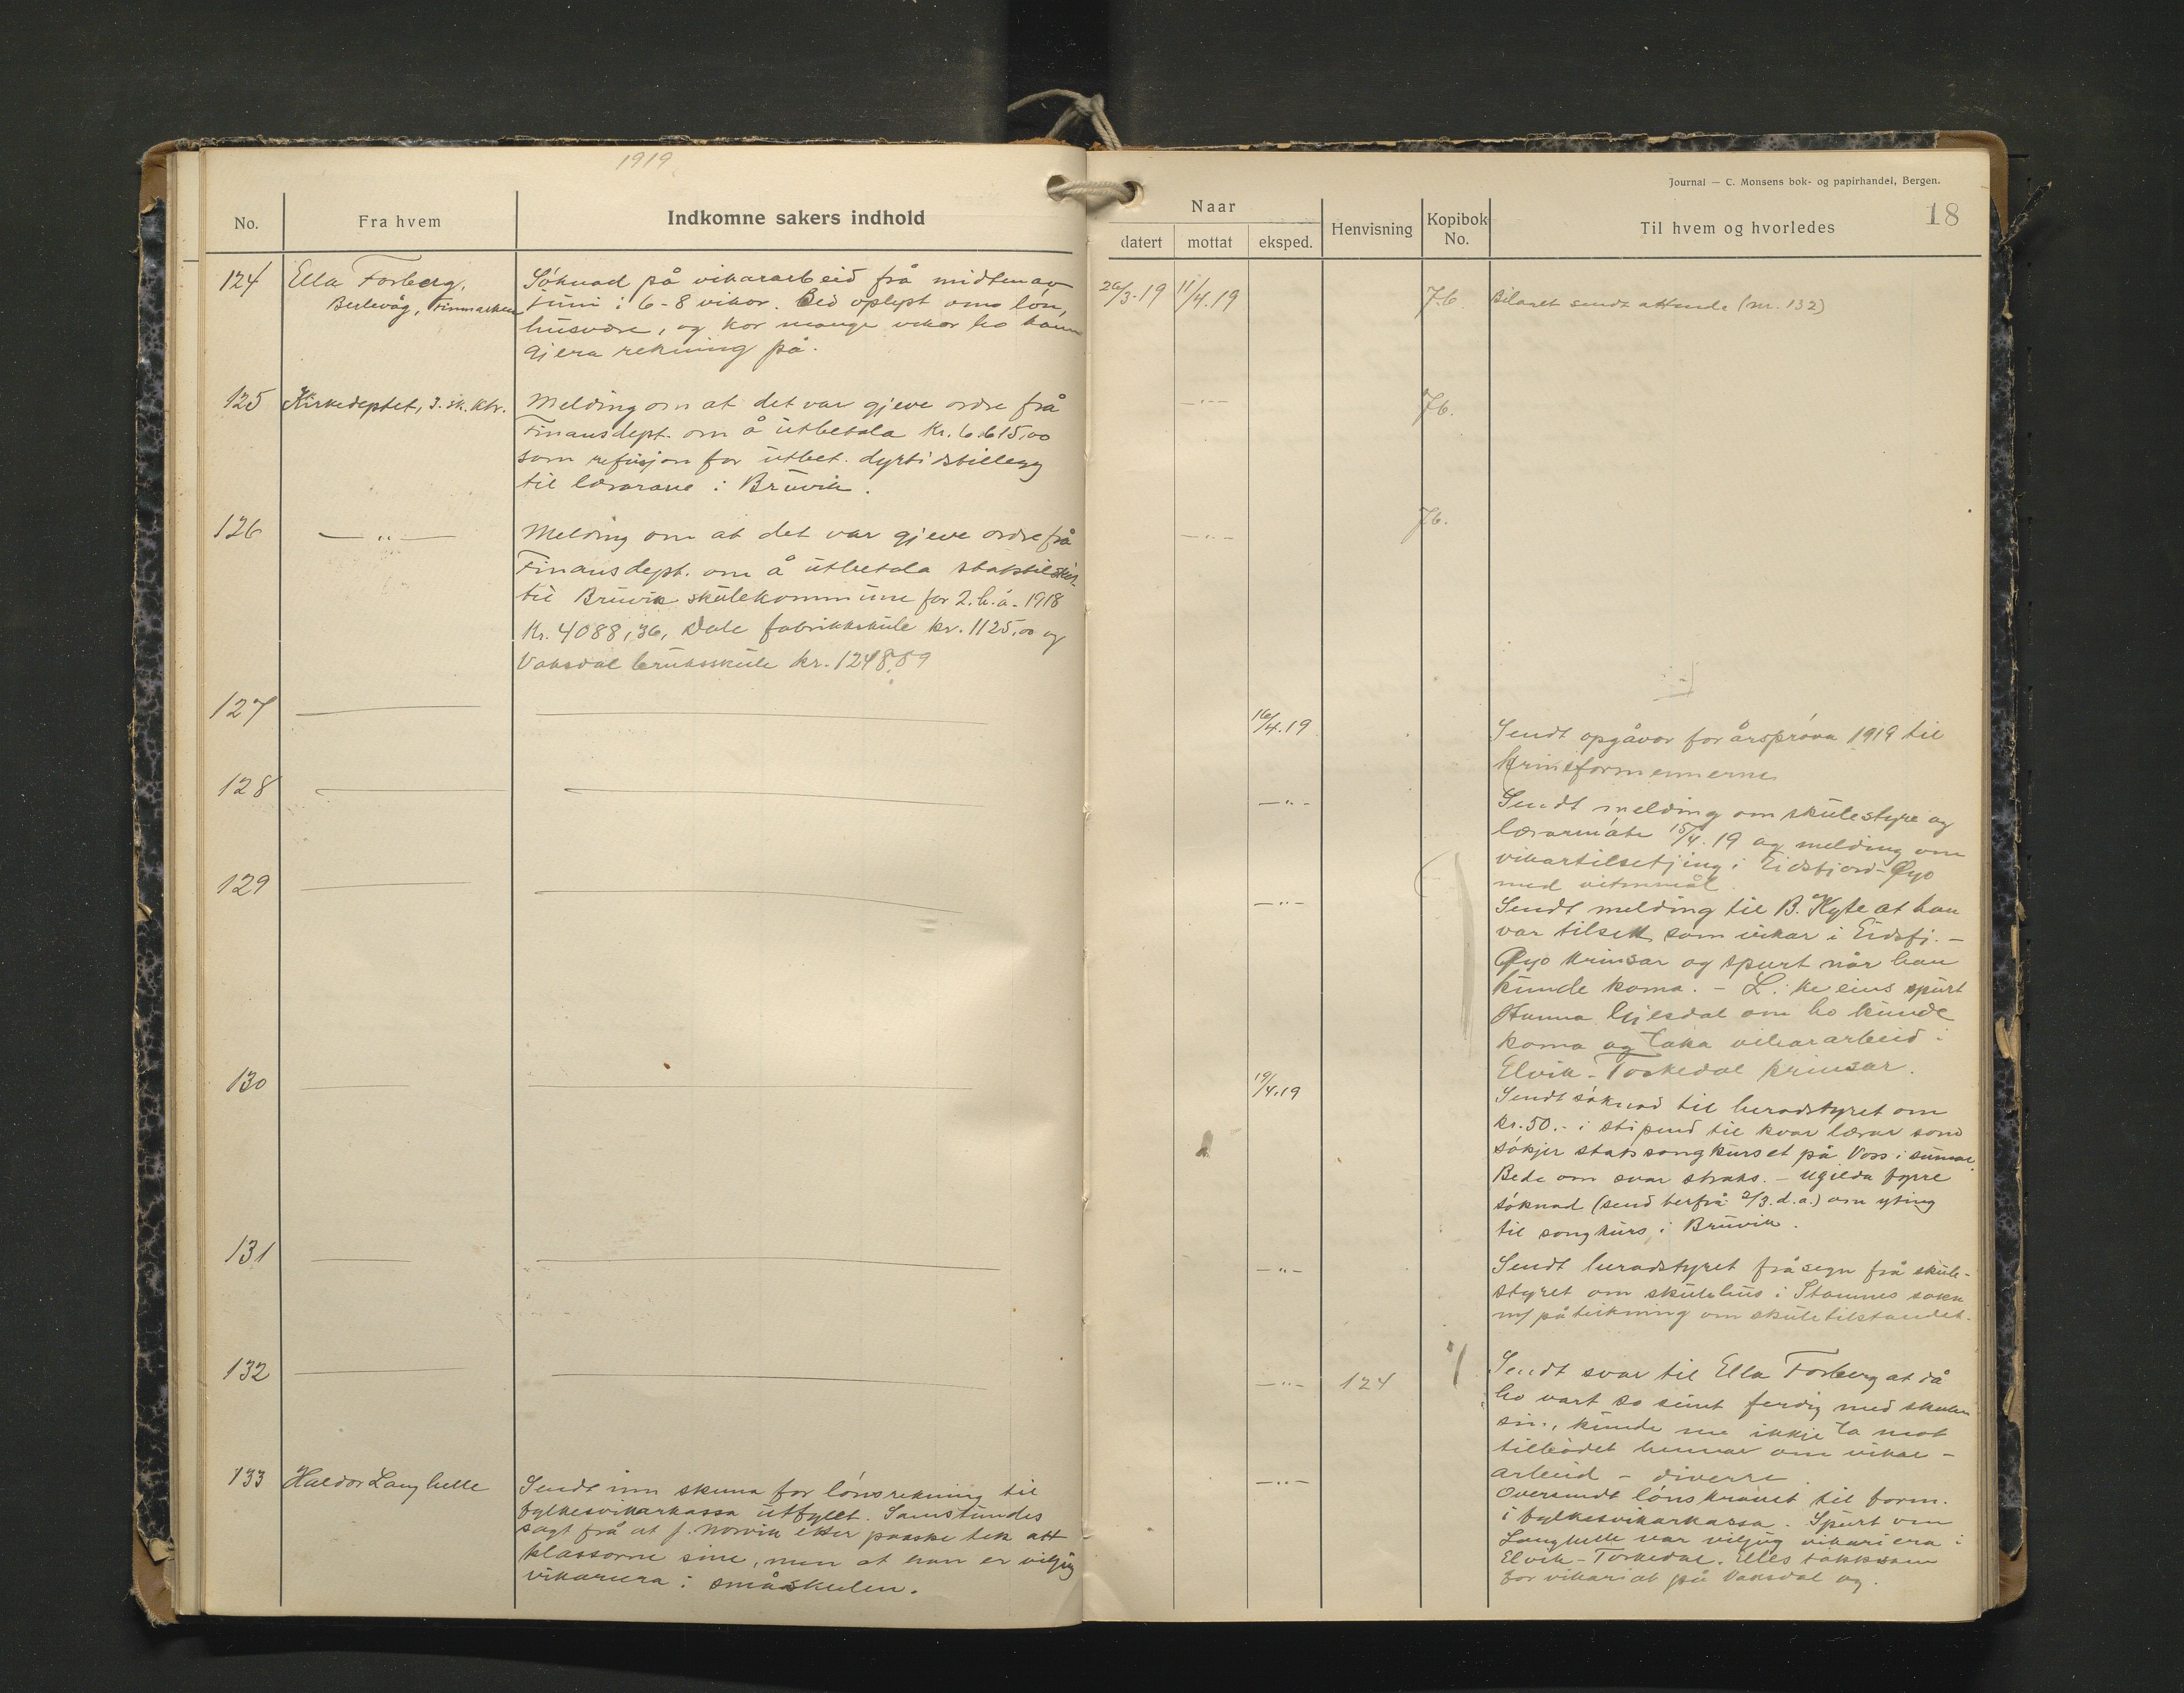 1919
No.
Fra hvem
Indkomne sakers indhold
124
Ella Forberg,
Berlevåg, Finmarken
Söknad på vikararbeid frå midten av
juni i 6-8 vikor. Bed oplyst om lön,
husvære, og kor mange vikor ho kann
gjera rekning på.
125
Kirkedeptet, 3. sk. ktr.
Melding om at det var gjeve ordre frå
Finansdept. om å utbetala Kr. 6.615,00
som refusjon for utbet. dyrtidstillegg
til lærarane i Bruvik.
126
— " —
Melding om at det var gjeve ordre frå
Finansdept. om å utbetala statstilskot
til Bruvik skulekommune for 2. h.å. 1918
Kr. 4088,36, Dale fabrikkskule kr. 1125,00 og
Vaksdal bruksskule kr. 1248,89
127
128
129
130
131
132
133
Haldor Langhelle
Sendt inn skema for lönsrekning til
fylkesvikarkassa utfyllt. Samstundes
sagt frå at J. Norvik etter paaske tek att
klassorne sine, men at han er viljug
vikariera i småskulen.
Journal — C. Monsens bok- og papirhandel, Bergen.
18
Naar
datert
mottat
eksped.
Henvisning
Kopibok
No.
Til hvem og hvorledes
26/3.19
11/4.19
7b.
Svaret sendt attende (nr. 132)
— " —
7b.
— " —
7b.
16/4.19
Sendt opgåvor for årspröva 1919 til
krinsformennerne
— " —
Sendt melding om skulestyre og
lærarmöte 15/4.19 og melding om
vikartilsetjing i Eidsfjord-Öyo
med vitnemål.
— " —
Sendt melding til B. Kyte at han
var tilsett som vikar i Eidsfj.-
Öyo krinsar og spurt når han
kunde koma. - L. i keeins spurt
Hanna Gjesdal om ho kunde
koma og taka vikararbeid i
Elvik - Toskedal krinsar.
19/4.19
Sendt söknad til heradstyret om
kr. 50.- i stipend til kvar lærar som
sökjer statssongkurset på Voss i sumar.
Bede om svar straks. - Ugilda fyrre
söknad (send herfrå 2/3. d.a.) om yting
til songkurs i Bruvik.
— " —
Sendt heradstyret fråsegn frå skule-
styret om skulehus i Stamnes sokn
m/ påteikning om skuletilstandet.
— " —
124
Sendt svar til Ella Forberg at då
ho vart so seint ferdig med skulen
sin, kunde me ikkje ta mot
tilbödet hennar om vikar-
arbeid - diverre.
— " —
Oversendt lönskravet til form.
i fylkesvikarkassa. Spurt om
Langhelle var viljug vikariera i
Elvik - Toskedal. Elles takksam
for vikariat på Vaksdal og.